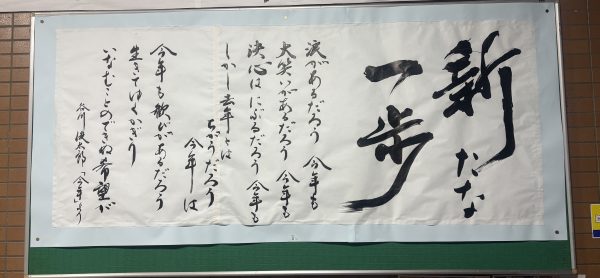 新たな
一歩
涙があるだろう 今年も
大笑いがあるだろう 今年も
決心はにぶるだろう 今年も
しかし去年とは
ちがうだろう
今年は
今年も歓びがあるだろう
生きてゆくかぎり
いなむことのできぬ希望が
谷川俊太郎「今年」より